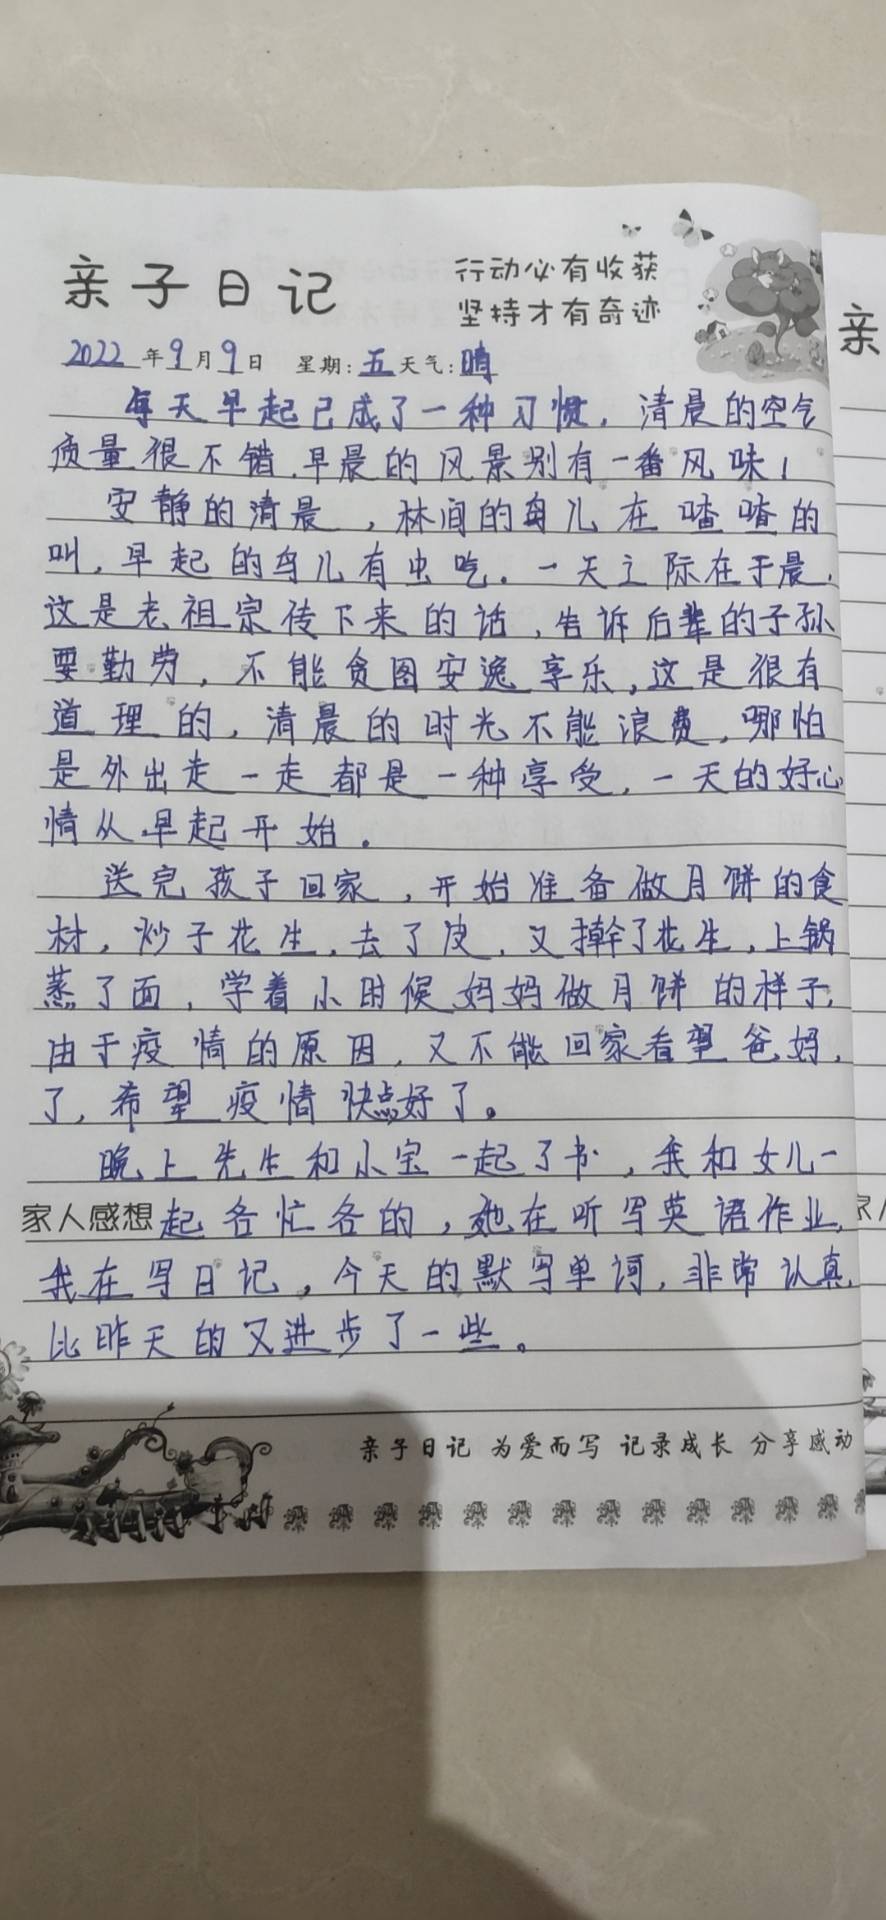 亲子日记
行动必有收获
坚持才有奇迹
亲
2022年9月9日 星期:五天气:晴
每天早起已成了一种习惯，清晨的空气
质量很不错，早晨的风景别有一番风味！
安静的清晨，林间的鸟儿在喳喳的
叫，早起的鸟儿有虫吃。一天之际在于晨，
这是老祖宗传下来的话，告诉后辈的子孙
要勤劳，不能贪图安逸享乐，这是很有
道理的，清晨的时光不能浪费，哪怕
是外出走一走都是一种享受，一天的好心
情从早起开始。
送完孩子回家，开始准备做月饼的食
材，炒子花生，去了皮，又擀了花生，上锅
蒸了面，学着小时候妈妈做月饼的样子，
由于疫情的原因，又不能回家看望爸妈，
了，希望疫情快点好了。
晚上先生和小宝一起了书，我和女儿一
家人感想起各忙各的，她在听写英语作业，
我在写日记，今天的默写单词，非常认真，
比昨天的又进步了一些。
亲子日记 为爱而写 记录成长 分享感动